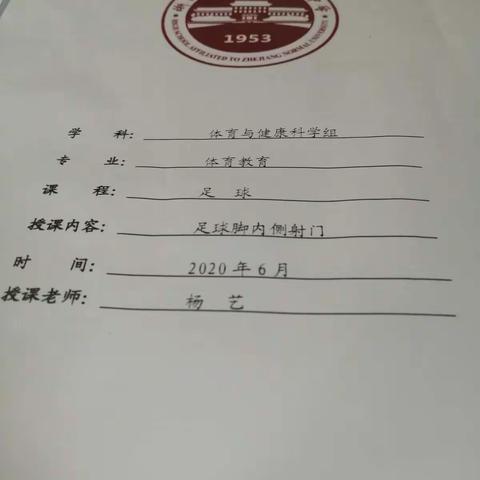 1953
HIGH SCHOOL AFFILIATED TO ZHEJIANG NORMAL UNIVERSITY
学 科: 体育与健康科学组
专 业: 体育教育
课 程: 足 球
授课内容: 足球脚内侧射门
时 间: 2020年6月
授课老师: 杨 艺